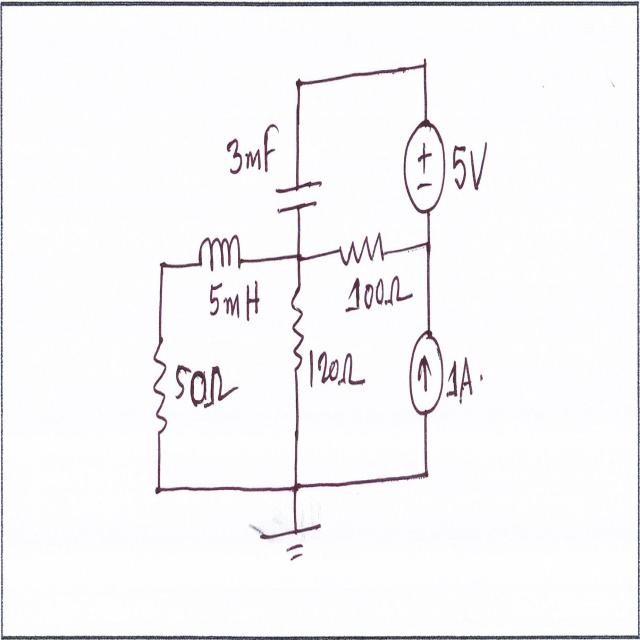 3mF
5V
5mH
100Ω
50Ω
120Ω
1A.